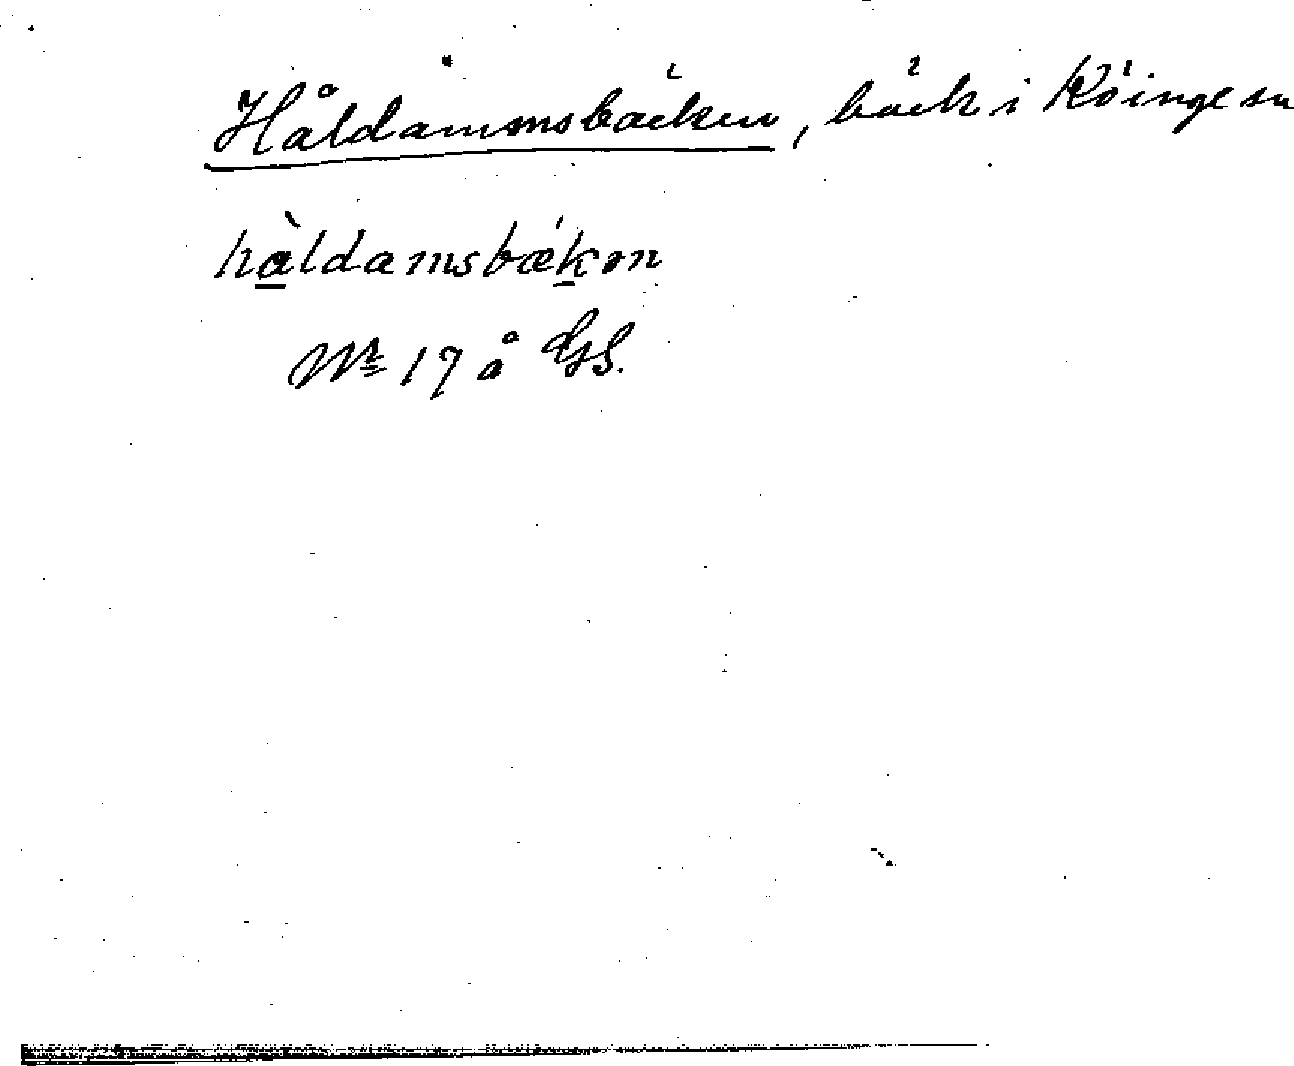 Håldammsbäcken, bäck i Köinge sn
hàldamsbǽkən
Nr 17 å GS.